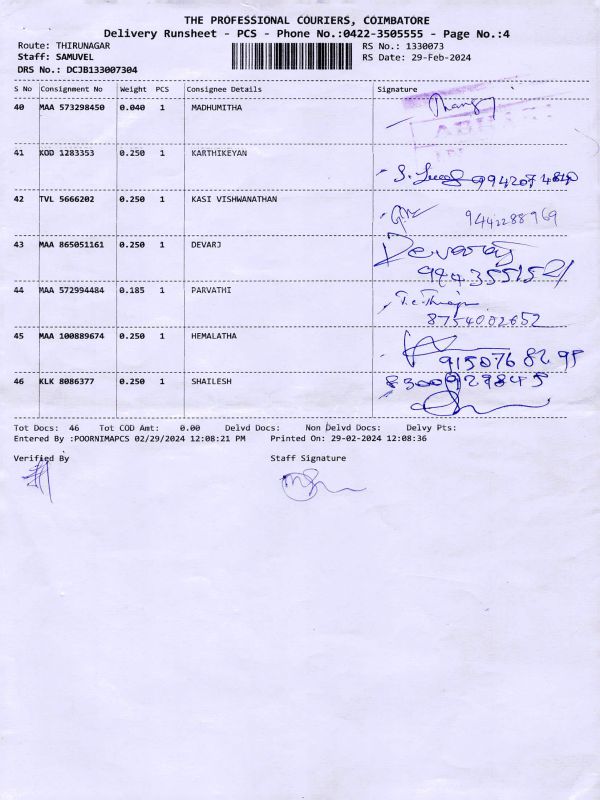 THE PROFESSIONAL COURIERS, COIMBATORE
Delivery Runsheet - PCS - Phone No.:0422-3505555 - Page No.:4
Route: THIRUNAGAR RS No.: 1330073
Staff: SAMUVEL RS Date: 29-Feb-2024
DRS No.: DCJB133007304
S No Consignment No Weight PCS Consignee Details Signature
40 MAA 573298450 0.040 1 MADHUMITHA
41 KOD 1283353 0.250 1 KARTHIKEYAN
42 TVL 5666202 0.250 1 KASI VISHWANATHAN
9442288969
43 MAA 865051161 0.250 1 DEVARJ
Devaraj
44 MAA 572994484 0.185 1 PARVATHI
8754002652
45 MAA 100889674 0.250 1 HEMALATHA
9150768295
46 KLK 8086377 0.250 1 SHAILESH
8300927845
Tot Docs: 46 Tot COD Amt: 0.00 Delvd Docs: Non Delvd Docs: Delvy Pts:
Entered By :POORNIMAPCS 02/29/2024 12:08:21 PM Printed On: 29-02-2024 12:08:36
Verified By Staff Signature